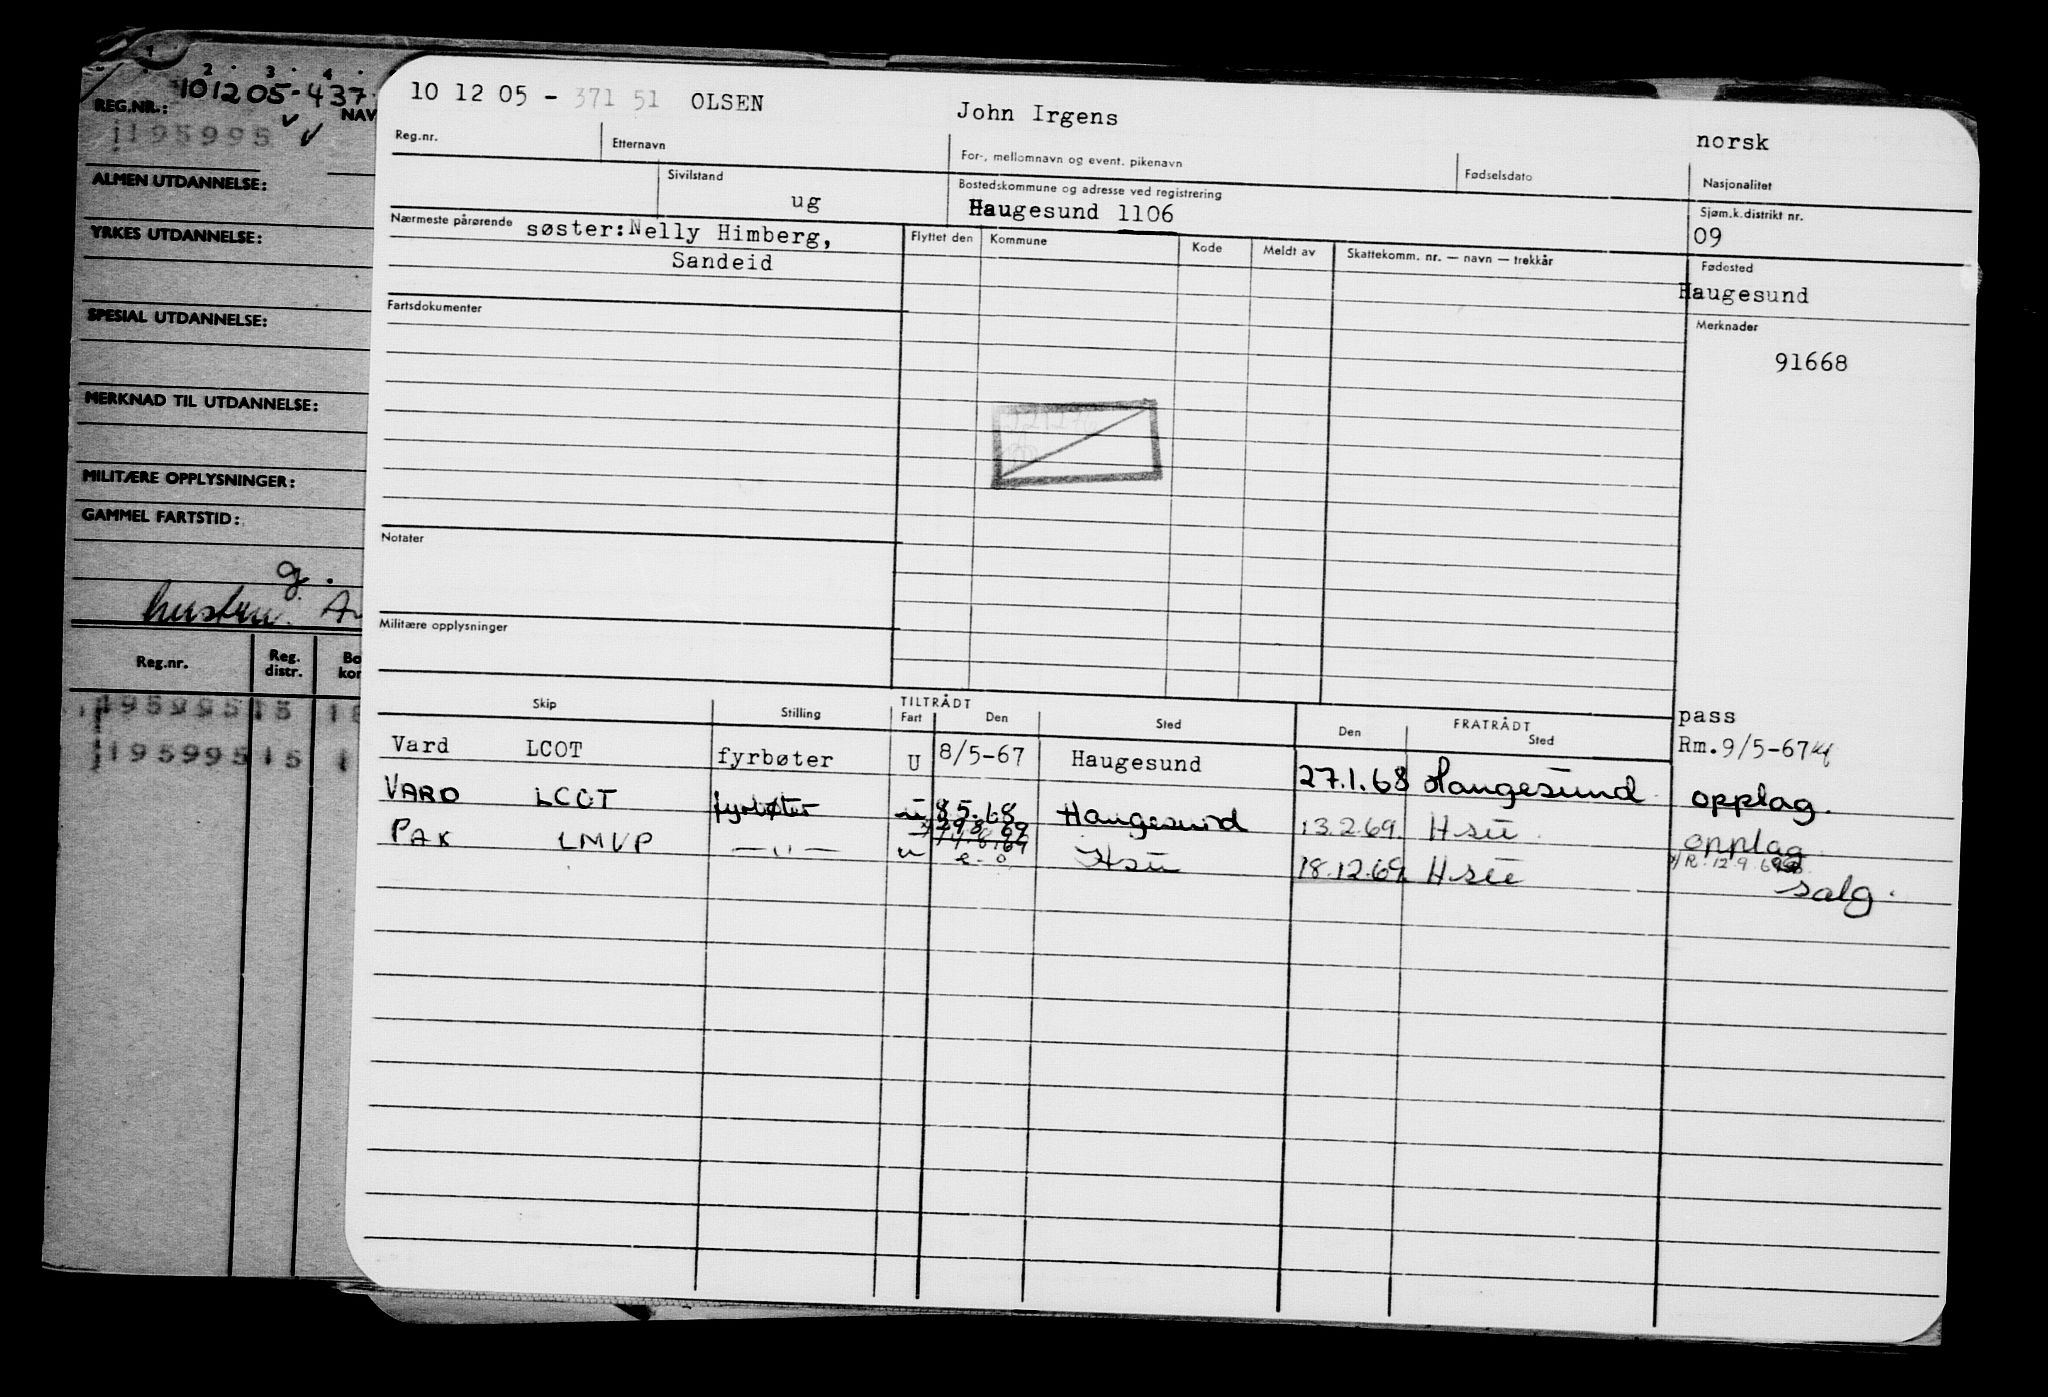 2 3 4
REG.NR.: 101205-437
NAV
195995
ALMEN UTDANNELSE:
YRKES UTDANNELSE:
SPESIAL UTDANNELSE:
MERKNAD TIL UTDANNELSE:
MILITÆRE OPPLYSNINGER:
GAMMEL FARTSTID:
g.
hustru.
Reg.nr. Reg. distr. Bo kor
195995 15 1
195995 15 1
10 12 05 - 371 51 OLSEN John Irgens norsk
Reg.nr. Etternavn For-, mellomnavn og event. pikenavn Fødselsdato Nasjonalitet
Sivilstand Bostedskommune og adresse ved registrering Sjøm.k.distrikt nr.
ug Haugesund 1106 09
Nærmeste pårørende søster:Nelly Himberg, Flyttet den Kommune Kode Meldt av Skattekomm. nr. — navn — trekkår Fødested
Sandeid Haugesund
Fartsdokumenter Merknader
91668
Notater
Militære opplysninger
TILTRÅDT FRATRÅDT
Skip Stilling Fart Den Sted Den Sted
pass
Vard LCOT fyrbøter U 8/5-67 Haugesund 27.1.68 Haugesund Rm.9/5-67
opplag.
VARD LCOT fyrbøter u 8.5.68 Haugesund 13.2.69. Hsu opplag.
PAK LMVP —"— u Hsu 18.12.69. Hsu salg.